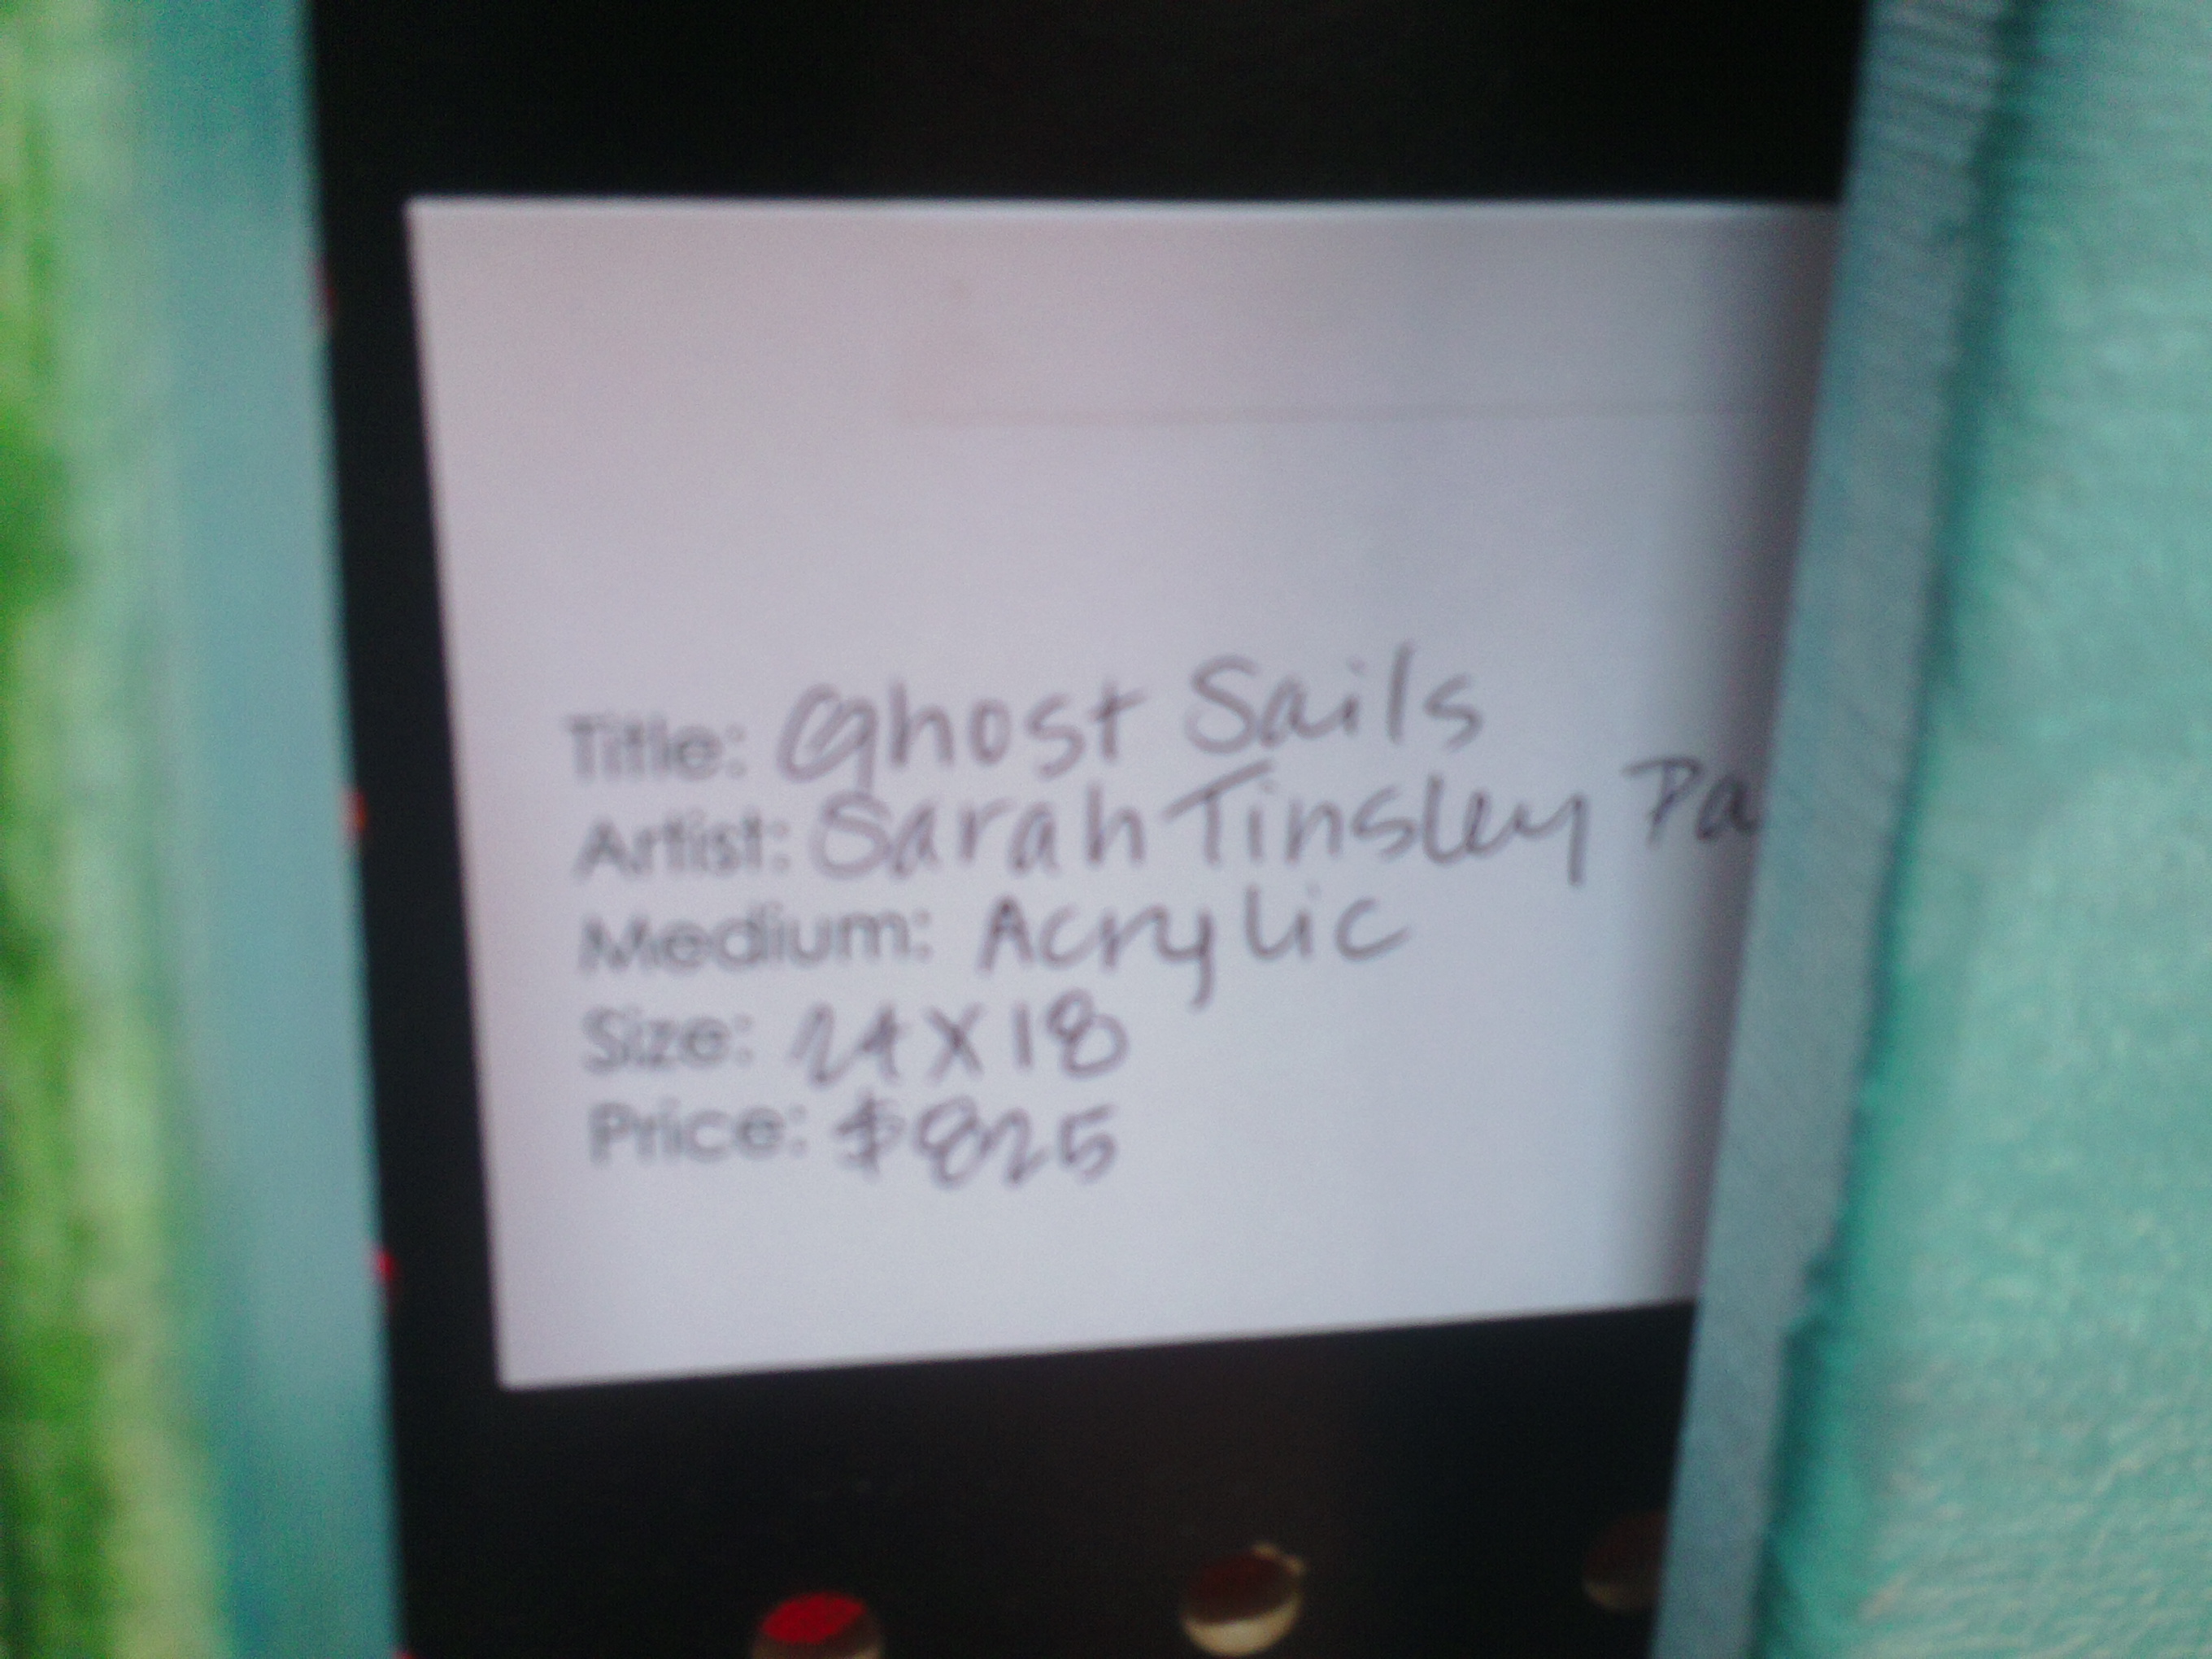 Title: Ghost Sails
Artist: Sarah Tinsley Pa
Medium: Acrylic
Size: 24X18
Price: $825